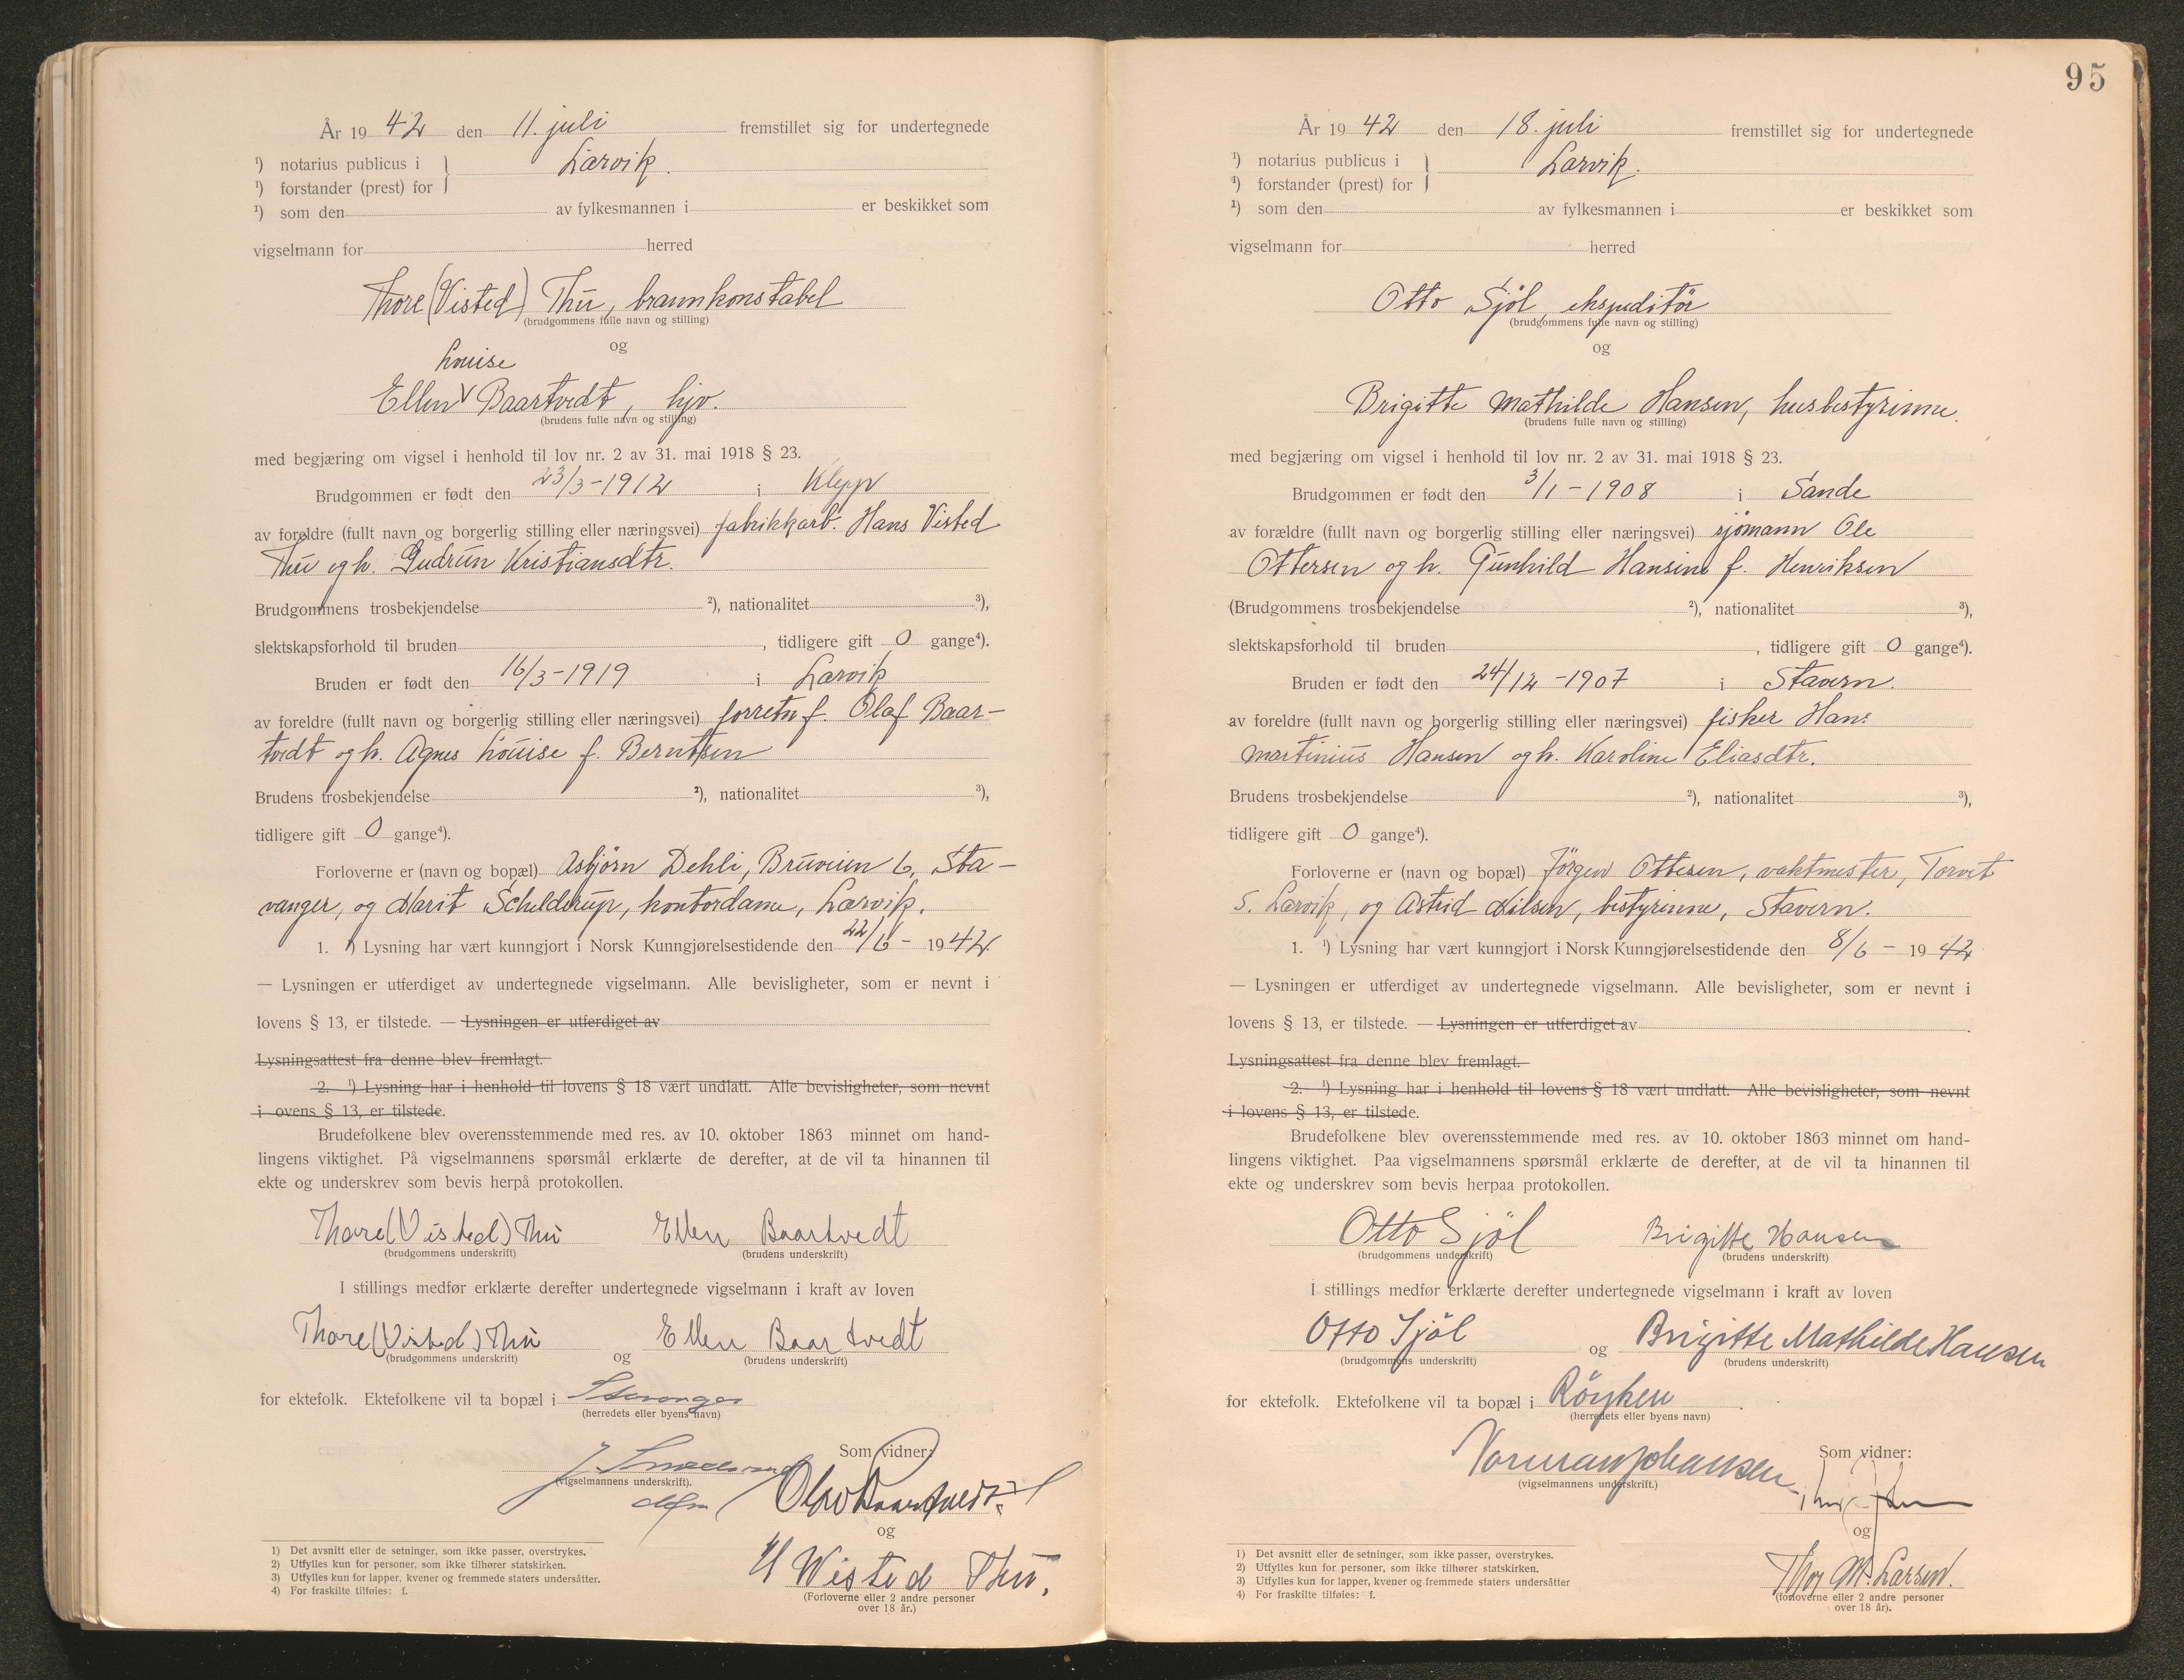 År 19 42 den 11. juli fremstillet sig for undertegnede
¹) notarius publicus i } Larvik.
¹) forstander (prest) for
¹) som den av fylkesmannen i er beskikket som
vigselmann for herred
Thore (Visted) Thu, brannkonstabel
(brudgommens fulle navn og stilling)
og
Louise
Ellen V Baartvedt, hjv.
(brudens fulle navn og stilling)
med begjæring om vigsel i henhold til lov nr. 2 av 31. mai 1918 § 23.
Brudgommen er født den 23/3-1912 i Klepp
av foreldre (fullt navn og borgerlig stilling eller næringsvei) fabrikkarb. Hans Visted
Thu og h. Gudrun Kristiansdtr.
Brudgommens trosbekjendelse ²), nationalitet ³),
slektskapsforhold til bruden , tidligere gift 0 gange⁴).
Bruden er født den 16/3-1919 i Larvik
av foreldre (fullt navn og borgerlig stilling eller næringsvei) forretn f. Olaf Baar-
tvedt og h. Agnes Louise f. Berntsen
Brudens trosbekjendelse ²), nationalitet ³),
tidligere gift 0 gange⁴).
Forloverne er (navn og bopæl) Asbjørn Dehli, Bruveien 6, Sta-
vanger, og Marit Schelderup, kontordame, Larvik.
1. ¹) Lysning har vært kunngjort i Norsk Kunngjørelsestidende den 22/6 - 1942
— Lysningen er utferdiget av undertegnede vigselmann. Alle bevisligheter, som er nevnt i
lovens § 13, er tilstede. — Lysningen er utferdiget av
Lysningsattest fra denne blev fremlagt.
2. ¹) Lysning har i henhold til lovens § 18 vært undlatt. Alle bevisligheter, som nevnt
i ovens § 13, er tilstede.
Brudefolkene blev overensstemmende med res. av 10. oktober 1863 minnet om hand-
lingens viktighet. På vigselmannens spørsmål erklærte de derefter, at de vil ta hinannen til
ekte og underskrev som bevis herpå protokollen.
Thore (Visted) Thu Ellen Baartvedt
(brudgommens underskrift) (brudens underskrift)
I stillings medfør erklærte derefter undertegnede vigselmann i kraft av loven
Thore (Visted) Thu og Ellen Baartvedt
(brudgommens underskrift) (brudens underskrift)
for ektefolk. Ektefolkene vil ta bopæl i Stavanger
(herredets eller byens navn)
Som vidner:
(vigselmannens underskrift).
Olav Baartvedt
og
H Wisted Thu.
(Forloverne eller 2 andre personer
over 18 år.)
1) Det avsnitt eller de setninger, som ikke passer, overstrykes.
2) Utfylles kun for personer, som ikke tilhører statskirken.
3) Utfylles kun for lapper, kvener og fremmede staters undersåtter.
4) For fraskilte tilføies: f.
95
År 19 42 den 18. juli fremstillet sig for undertegnede
¹) notarius publicus i } Larvik.
¹) forstander (prest) for
¹) som den av fylkesmannen i er beskikket som
vigselmann for herred
Otto Sjöl, ekspeditör
(brudgommens fulle navn og stilling)
og
Brigitte Mathilde Hansen, husbestyrinne.
(brudens fulle navn og stilling)
med begjæring om vigsel i henhold til lov nr. 2 av 31. mai 1918 § 23.
Brudgommen er født den 3/1-1908 i Sande
av forældre (fullt navn og borgerlig stilling eller næringsvei) sjömann Ole
Ottersen og h. Gunhild Hansine f. Henriksen
(Brudgommens trosbekjendelse ²), nationalitet ³),
slektskapsforhold til bruden , tidligere gift 0 gange⁴).
Bruden er født den 24/12-1907 i Stavern.
av foreldre (fullt navn og borgerlig stilling eller næringsvei) fisker Hans
Martinius Hansen og h. Karoline Eliasdtr.
Brudens trosbekjendelse ²), nationalitet ³),
tidligere gift 0 gange⁴).
Forloverne er (navn og bopæl) Jörgen Ottesen, vaktmester, Torvet
5. Larvik, og Astrid Nilsen, bestyrinne, Stavern.
1. ¹) Lysning har vært kunngjort i Norsk Kunngjørelsestidende den 8/6 - 1942
— Lysningen er utferdiget av undertegnede vigselmann. Alle bevisligheter, som er nevnt i
lovens § 13, er tilstede. — Lysningen er utferdiget av
Lysningsattest fra denne blev fremlagt.
2. ¹) Lysning har i henhold til lovens § 18 vært undlatt. Alle bevisligheter, som nevnt
i lovens § 13, er tilstede.
Brudefolkene blev overensstemmende med res. av 10. oktober 1863 minnet om hand-
lingens viktighet. Paa vigselmannens spørsmål erklærte de derefter, at de vil ta hinannen til
ekte og underskrev som bevis herpaa protokollen.
Otto Sjöl Brigitte Hansen
(brudgommens underskrift) (brudens underskrift)
I stillings medfør erklærte derefter undertegnede vigselmann i kraft av loven
Otto Sjöl og Brigitte Mathilde Hansen
(brudgommens underskrift) (brudens underskrift)
for ektefolk. Ektefolkene vil ta bopæl i Röyken
(herredets eller byens navn)
Norman Johansen Som vidner:
(vigselmannens underskrift.)
og
Thor M. Larsen.
(forloverne eller 2 andre personer
over 18 år).
1) Det avsnitt eller de setninger, som ikke passer, overstrykes.
2) Utfylles kun for personer, som ikke tilhører statskirken.
3) Utfylles kun for lapper, kvener og fremmede staters undersåtter
4) For fraskilte tilføies: f.